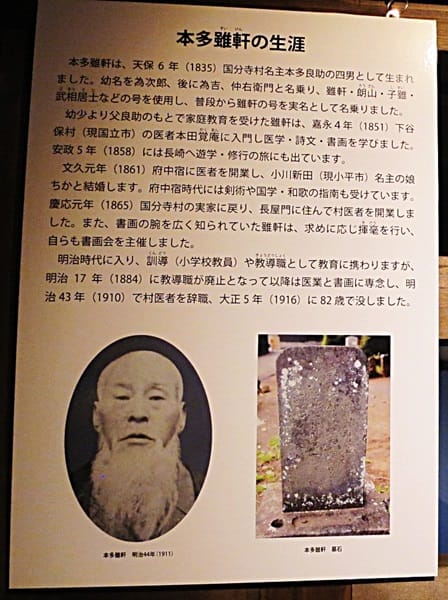 本多雖軒の生涯
すい けん
本多雖軒は、天保6年（1835）国分寺村名主本多良助の四男として生まれ
ました。幼名を為次郎、後に為吉、仲右衛門と名乗り、雖軒・朗山・子雖・
武相居士などの号を使用し、普段から雖軒の号を実名として名乗りました。
幼少より父良助のもとで家庭教育を受けた雖軒は、嘉永4年（1851）下谷
保村（現国立市）の医者本田覚庵に入門し医学・詩文・書画を学びました。
安政5年（1858）には長崎へ遊学・修行の旅にも出ています。
文久元年（1861）府中宿に医者を開業し、小川新田（現小平市）名主の娘
ちかと結婚します。府中宿時代には剣術や国学・和歌の指南も受けています。
慶応元年（1865）国分寺村の実家に戻り、長屋門に住んで村医者を開業しま
した。また、書画の腕を広く知られていた雖軒は、求めに応じ揮毫を行い、
自らも書画会を主催しました。
明治時代に入り、訓導（小学校教員）や教導職として教育に携わりますが、
明治17年（1884）に教導職が廃止となって以降は医業と書画に専念し、明
治43年（1910）で村医者を辞職、大正5年（1916）に82歳で没しました。
本多雖軒 明治44年（1911）
本多雖軒 墓石